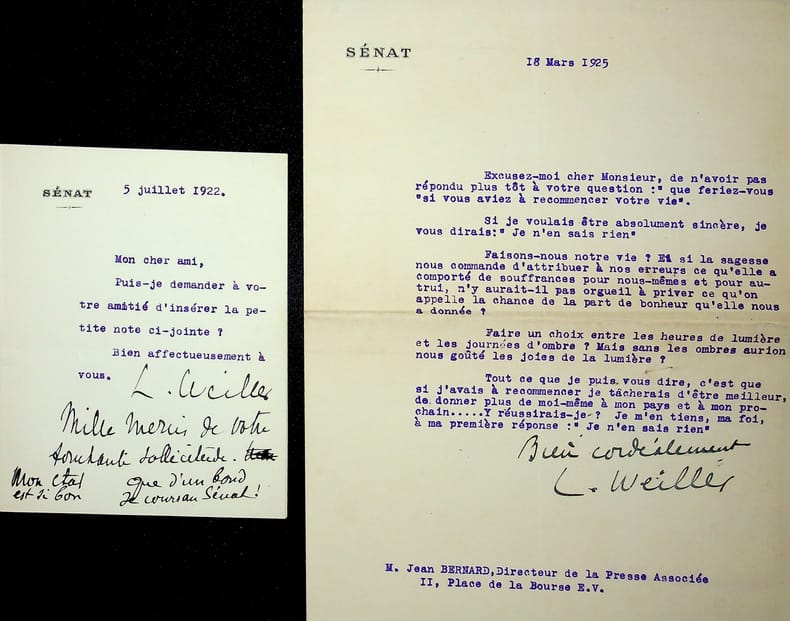 SÉNAT
5 juillet 1922.
Mon cher ami,
Puis-je demander à vo-
tre amitié d'insérer la pe-
tite note ci-jointe ?
Bien affectueusement à
vous.
L. Weiller
Mille mercis de votre
touchante sollicitude.
Mon état
est si bon
que d'un bond
Je cours au Sénat!
SÉNAT
18 Mars 1925
Excusez-moi cher Monsieur, de n'avoir pas
répondu plus tôt à votre question :" que feriez-vous
"si vous aviez à recommencer votre vie".
Si je voulais être absolument sincère, je
vous dirais:" Je n'en sais rien"
Faisons-nous notre vie ? Et si la sagesse
nous commande d'attribuer à nos erreurs ce qu'elle a
comporté de souffrances pour nous-mêmes et pour au-
trui, n'y aurait-il pas orgueil à priver ce qu'on
appelle la chance de la part de bonheur qu'elle nous
a donnée ?
Faire un choix entre les heures de lumière
et les journées d'ombre ? Mais sans les ombres aurion
nous goûté les joies de la lumière ?
Tout ce que je puis vous dire, c'est que
si j'avais à recommencer je tâcherais d'être meilleur,
de donner plus de moi-même à mon pays et à mon pro-
chain.....Y réussirais-je ? Je m'en tiens, ma foi,
à ma première réponse :" Je n'en sais rien"
Bien cordialement
L. Weiller
M. Jean BERNARD,Directeur de la Presse Associée
II, Place de la Bourse E.V.